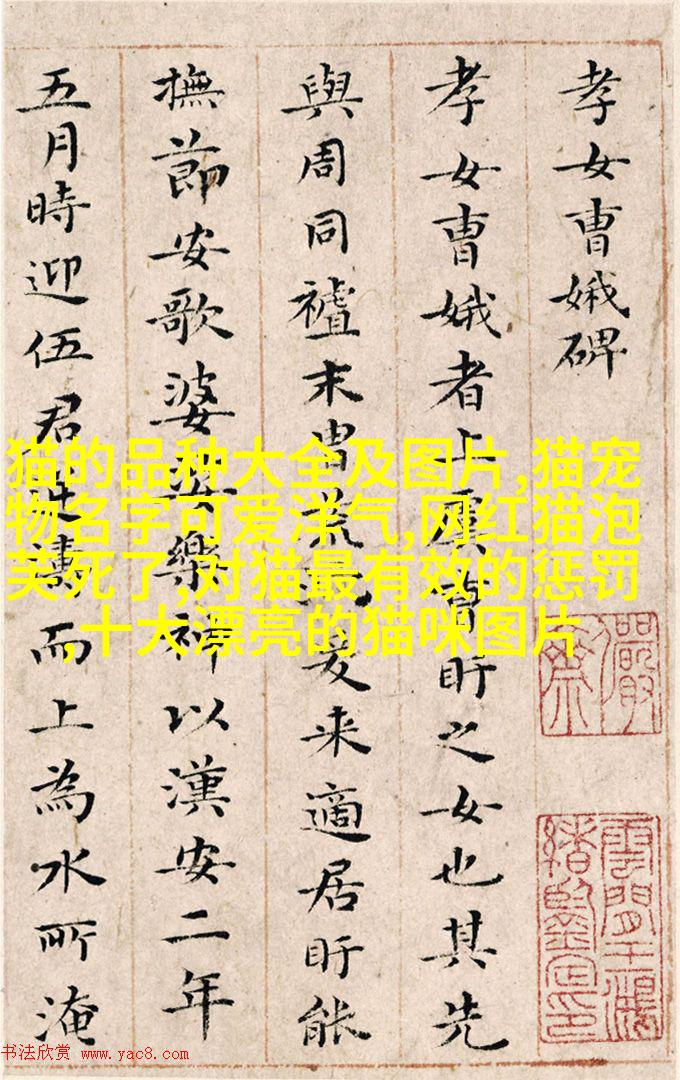 孝女曹娥碑
孝女曹娥者上虞曹盱之女也其先
與周同末胄荒爰来適居盱能
撫節安歌婆娑樂神以漢安二年
五月時迎伍君逆濤而上為水所淹
猫的品种大全及图片,猫宠
物名字可爱洋气,网红猫泡
芙死了,对猫最有效的惩罚
,十大漂亮的猫咪图片
儼齋
雲間王鴻緒鑒定印
书法欣赏 www.yac8.com